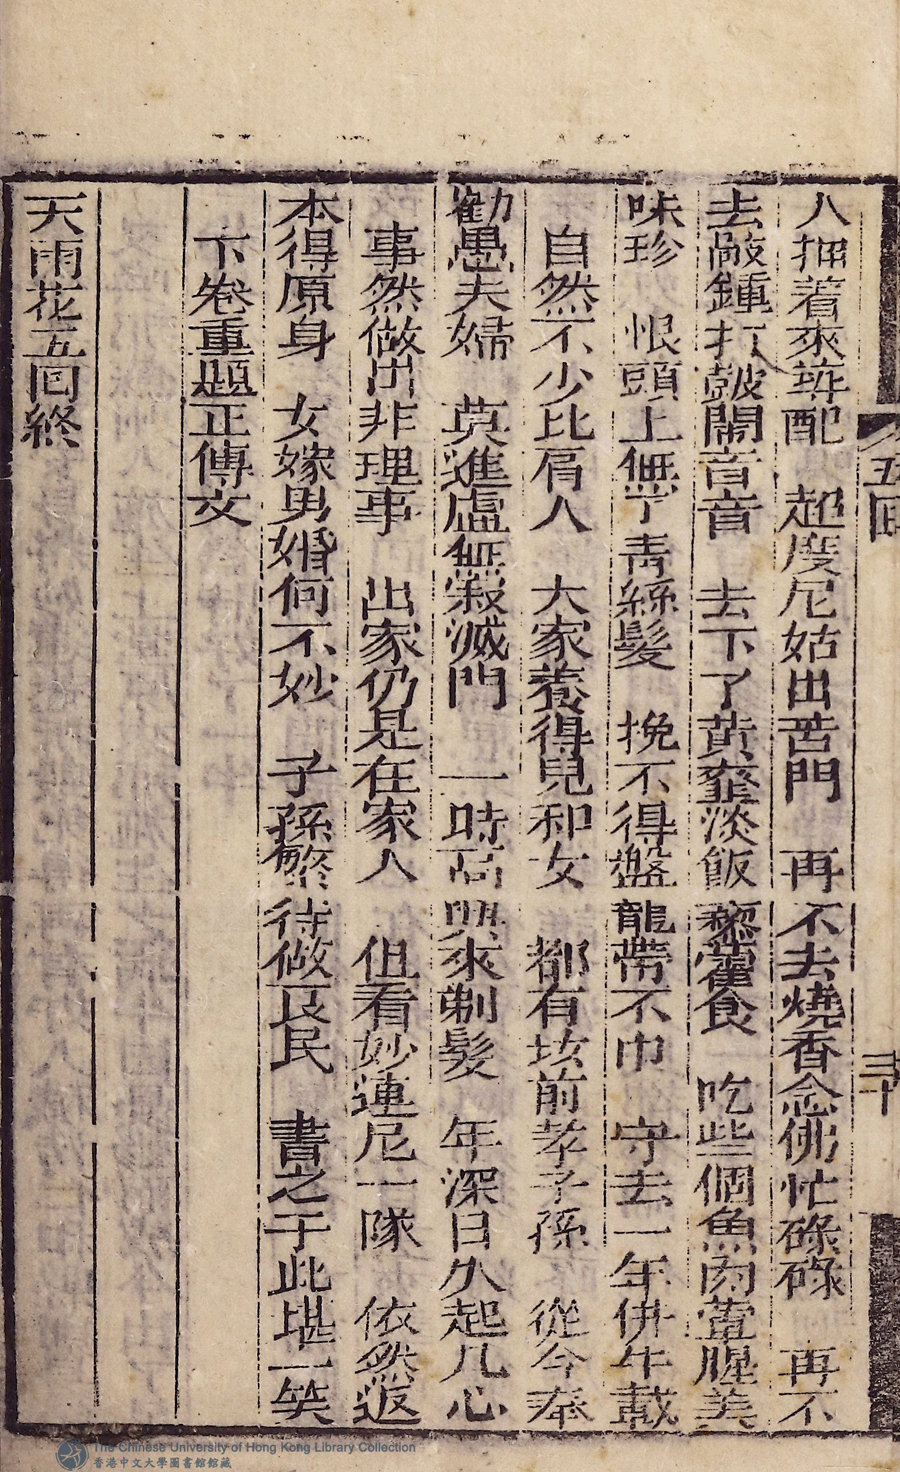 五回
三十
人押着來婚配　超度尼姑出苦門　再不去燒香念佛忙碌碌　再不
去敲鍾打皷閙音音　去下了黄虀淡飯藜藿食　吃些個魚肉葷腥美
味珍　恨頭上無亇青絲髮　挽不得盤龍帶不巾　守去一年併半載
自然不少比肩人　大家養得兒和女　都有坟前孝子孫　從今奉
勸愚夫婦　莫進虛無寂滅門　一時高興來剃髮　年深日久起凡心
事然做出非理事　出家仍是在家人　但看妙蓮尼一隊　依然返
本得原身　女嫁男婚何不妙　子孫繁待做良民　書之于此堪一笑
下卷重題正傳文
天雨花五回終
The Chinese University of Hong Kong Library Collection
香港中文大學圖書館館藏